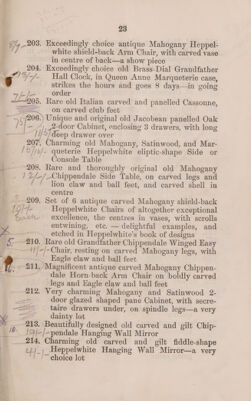 23
203. Exceedingly choice antique Mahogany Heppel-
white shield-back Arm Chair, with carved vase
in centre of back—a show piece
204. Exceedingly choice old Brass Dial Grandfather
Hall Clock, in Queen Anne Marqueterie case,
strikes the hours and goes 8 days—in going
order
205. Rare old Italian carved and panelled Cassonne,
on carved club feet
206. Unique and original old Jacobean panelled Oak
2-door Cabinet, enclosing 3 drawers, with long
deep drawer over
207. Charming old Mahogany, Satinwood, and Mar-
queterie Heppelwhite eliptic-shape Side or
Console Table
208. Rare and thoroughly original old Mahogany
Chippendale Side Table, on carved legs and
lion claw and ball feet, and carved shell in
centre
209. Set of 6 antique carved Mahogany shield-back
Heppelwhite Chairs of altogether exceptional
excellence, the centres in vases, with scrolls
entwining, etc. — delightful examples, and
etched in Heppelwhite's book of designs
210. Rare old Grandfather Chippendale Winged Easy
Chair, resting on carved Mahogany legs, with
Eagle claw and ball feet
211. Magnificent antique carved Mahogany Chippen-
dale Horn-back Arm Chair on boldly carved
legs and Eagle claw and ball feet
212. Very charming Mahogany and Satinwood 2-
door glazed shaped pane Cabinet, with secre-
taire drawers under, on spindle legs—a very
dainty lot
213. Beautifully designed old carved and gilt Chip-
pendale Hanging-Wall Mirror
214. Charming old carved and gilt fiddle-shape
Heppelwhite Hanging Wall Mirror—a very
choice lot